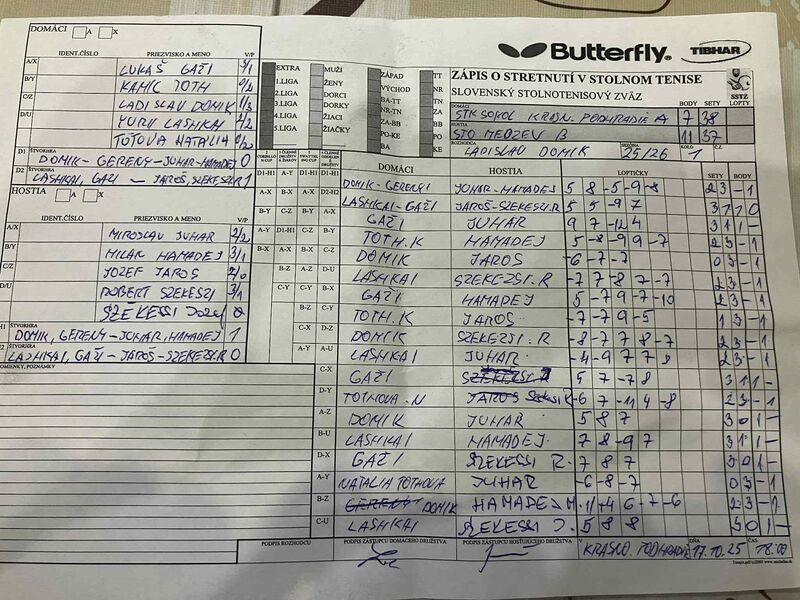 DOMÁCI A X
IDENT.ČÍSLO PRIEZVISKO A MENO V/P
A/X LUKAŠ GAŽI 3/1
B/Y KAMIL TOTH 0/2
C/Z LADISLAV DOMIK 1/3
D/U YURII LASHKAI 2/2
TÓTOVA NATALIA 0/2
D1 ŠTVORHRA DOMIK-GERENY-JUHAR-HAMADEJ 0
D2 ŠTVORHRA LASHKAI, GAŽI - JAROŠ, SZEKESZI.R 1
HOSTIA A X
IDENT.ČÍSLO PRIEZVISKO A MENO V/P
A/X MIROSLAV JUHAR 2/2
B/Y MILAN HAMADEJ 3/1
C/Z JOZEF JAROŠ 2/0
D/U ROBERT SZEKESZI 3/1
SZEKESSI JOZEF 0
ŠTVORHRA DOMIK, GERENY-JUHAR, HAMADEJ 1
ŠTVORHRA LASHKAI, GAŽI - JAROŠ-SZEKESZI.R 0
POZNÁMKY
EXTRA
1.LIGA
2.LIGA
3.LIGA
4.LIGA
5.LIGA
MUŽI
ŽENY
DORCI
DORKY
ŽIACI
ŽIAČKY
ZÁPAD
VÝCHOD
BA-TT
TN-ZA
ZA-BB
PO-KE
Butterfly
TIBHAR
ZÁPIS O STRETNUTÍ V STOLNOM TENISE
SLOVENSKÝ STOLNOTENISOVÝ ZVÄZ
SSTZ
BODY SETY LOPTY
DOMÁCI STK SOKOL KRÁSN. PODHRADIE A 7 38
HOSTIA STO MEDZEV B 11 37
ROZHODCA LADISLAV DOMIK SEZÓNA 25/26 KOLO 1 Č.Z.
DOMÁCI HOSTIA LOPTIČKY SETY BODY
DOMIK-GERENYI JUHAR-HAMADEJ 5 8 -5 -9 -8 2 3 - 1
LASHKAI-GAŽI JAROŠ-SZEKESZI.R 5 5 -9 7 3 1 1 0
GAŽI JUHAR 9 7 -12 4 3 1 1 -
TOTH.K HAMADEJ 5 -8 -9 9 -7 2 3 - 1
DOMIK JAROŠ -6 -7 -7 0 3 - 1
LASHKAI SZEKEZSI.R -7 7 -8 7 -7 2 3 - 1
GAŽI HAMADEJ 5 -7 9 -7 -10 2 3 - 1
TOTH.K JAROŠ -7 -7 9 -5 1 3 - 1
DOMIK SZEKEZSI.R -8 -7 7 8 -7 2 3 - 1
LASHKAI JUHAR -4 -9 7 7 8 2 3 - 1
C-X GAŽI 5 7 -7 8 3 1 1 -
D-Y TOTHOVA.N -6 7 -11 4 -8 2 3 - 1
A-Z DOMIK JUHAR 5 8 7 3 0 1 -
B-U LASHKAI HAMADEJ 7 8 -9 7 3 1 1 -
D-X GAŽI SZEKESSI R. 7 8 7 3 0 1 -
A-Y NATALIA TOTHOVA JUHAR -6 -8 -7 0 3 - 1
B-Z DOMIK HAMADEJ M. 6 -7 -6 2 3 - 1
C-U LASHKAI SZEKESSI J. 5 8 8 3 0 1 -
PODPIS ROZHODCU PODPIS ZÁSTUPCU DOMÁCEHO DRUŽSTVA PODPIS ZÁSTUPCU HOSŤUJÚCEHO DRUŽSTVA V DŇA ČAS
KRÁSNO. PODHRADIE 17.10.25 18.00